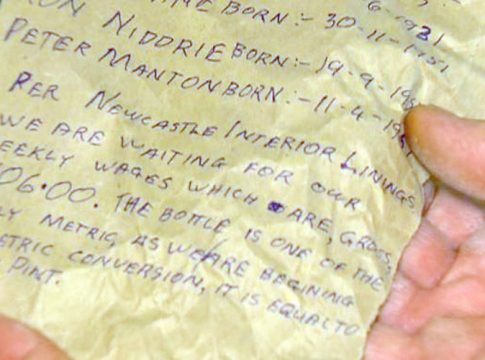 BORN:- 30-11-1951
6-1931
ON NIDDRIE BORN:- 19-9-19
PETER MANTON BORN:- 11-4-19
PER NEWCASTLE INTERIOR LININGS
WE ARE WAITING FOR OUR
EEKLY WAGES WHICH ARE, GROSS,
06.00. THE BOTTLE IS ONE OF THE
LY METRIC, AS WE ARE BEGINING
ETRIC CONVERSION, IT IS EQUAL TO
PINT.